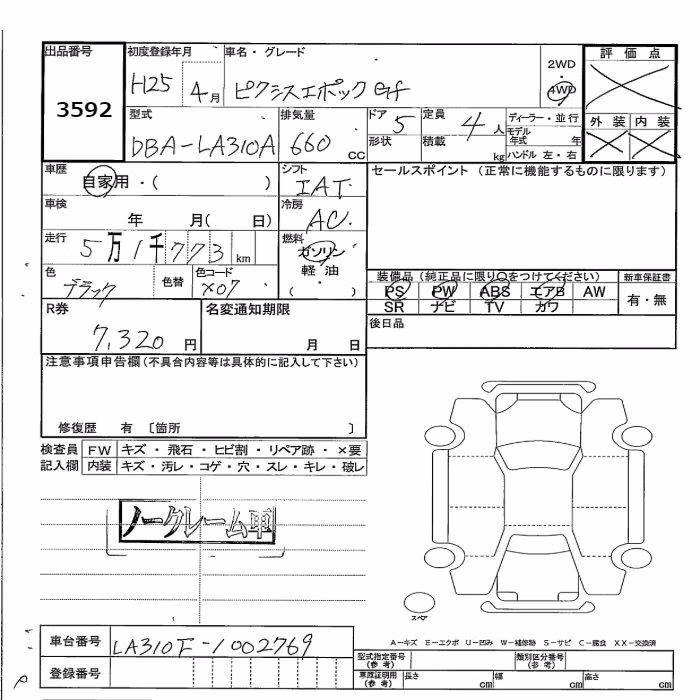 出品番号
3592
初度登録年月
H25 4月
車名・グレード
ピクシスエポック Gf
2WD
・
4WD
評価点
外装 内装
型式
DBA-LA310A
排気量
660 cc
ドア 5
形状
定員 4人
積載 kg
ディーラー・並行
モデル年式 年
ハンドル 左・右
車歴
自家用・( )
シフト
IAT
セールスポイント (正常に機能するものに限ります)
車検
年 月( 日)
冷房
AC
走行
5万1千773km
燃料
ガソリン
軽油
・
( )
色
ブラック
色替
色コード
X07
装備品(純正品に限り○をつけてください)
新車保証書
PS PW ABS エアB AW
SR ナビ TV カワ
有・無
R券
7,320円
名変通知期限
月 日
後日品
注意事項申告欄(不具合内容等は具体的に記入して下さい)
修復歴 有 〔箇所 〕
検査員記入欄
FW キズ・飛石・ヒビ割・リペア跡・×要
内装 キズ・汚レ・コゲ・穴・スレ・キレ・破レ
ノークレーム車
スペア
車台番号
LA310F-1002769
登録番号
A-キズ E-エクボ U-凹み W-補修跡 S-サビ C-腐食 XX-交換済
型式指定番号(参考)
類別区分番号(参考)
車庫証明用(参考)
長さ cm 幅 cm 高さ cm